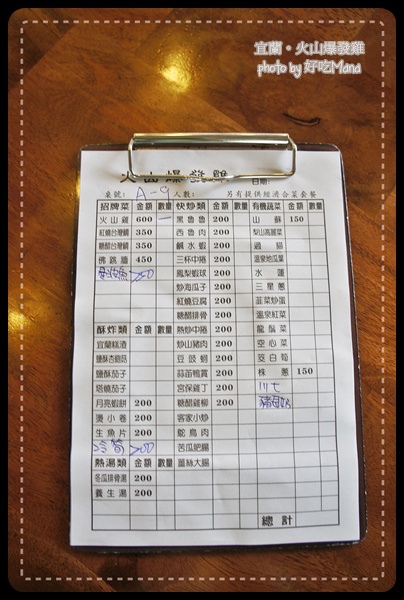 宜蘭•火山爆發雞
photo by 好吃Mana
火山爆發雞
日期:
桌號: A-9 人數: 另有提供經濟合菜套餐
招牌菜 金額 數量 快炒類 金額 數量 有機蔬菜 金額 數量
火山雞 600 一 黑魯魯 200 山蘇 150
紅燒台灣鯛 350 西魯肉 200 梨山高麗菜
糖醋台灣鯛 350 鹹水蝦 200 過貓
佛跳牆 450 三杯中捲 200 溫泉地瓜葉
250 鳳梨蝦球 200 水蓮
炒海瓜子 200 三星蔥
紅燒豆腐 200 韮菜炒蛋
糖醋排骨 200 溫泉紅菜
酥炸類 金額 數量 熱炒中捲 200 龍鬚菜
宜蘭糕渣 炒山豬肉 200 空心菜
鹽酥杏鮑菇 豆豉蚵 200 茭白筍
鹽酥茄子 蒜苗鴨賞 200 株蔥 150
塔燒茄子 宮保雞丁 200 川七
月亮蝦餅 200 糖醋雞柳 200
燙小卷 200 客家小炒
生魚片 200 鴕鳥肉
冷筍 200 苦瓜肥腸
熱湯類 金額 數量 薑絲大腸
冬瓜排骨湯 200
養生湯 200
總計